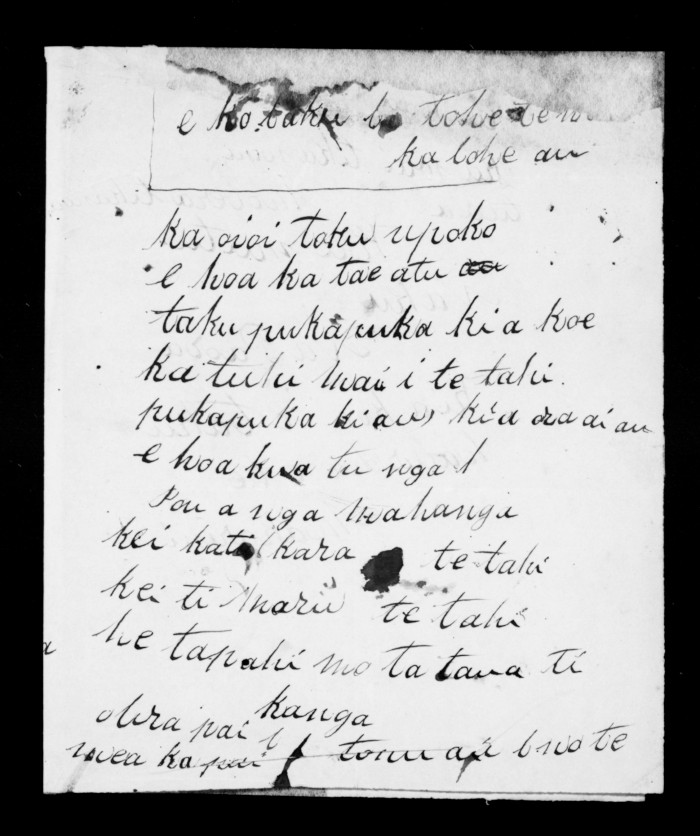 e ko taku tohe
ka tohe au
ka oioi toku upoko
e hoa ka tae atu
taku pukapuka kia koe
ka tuhi mai i te tahi
pukapuka ki au kia ora ai au
e hoa kua tu nga
Pou a nga mahanga
kei kati kara te tahi
kei ti maru te tahi
he tapahi mo ta taua ti
kanga
ohra pai
ka pai